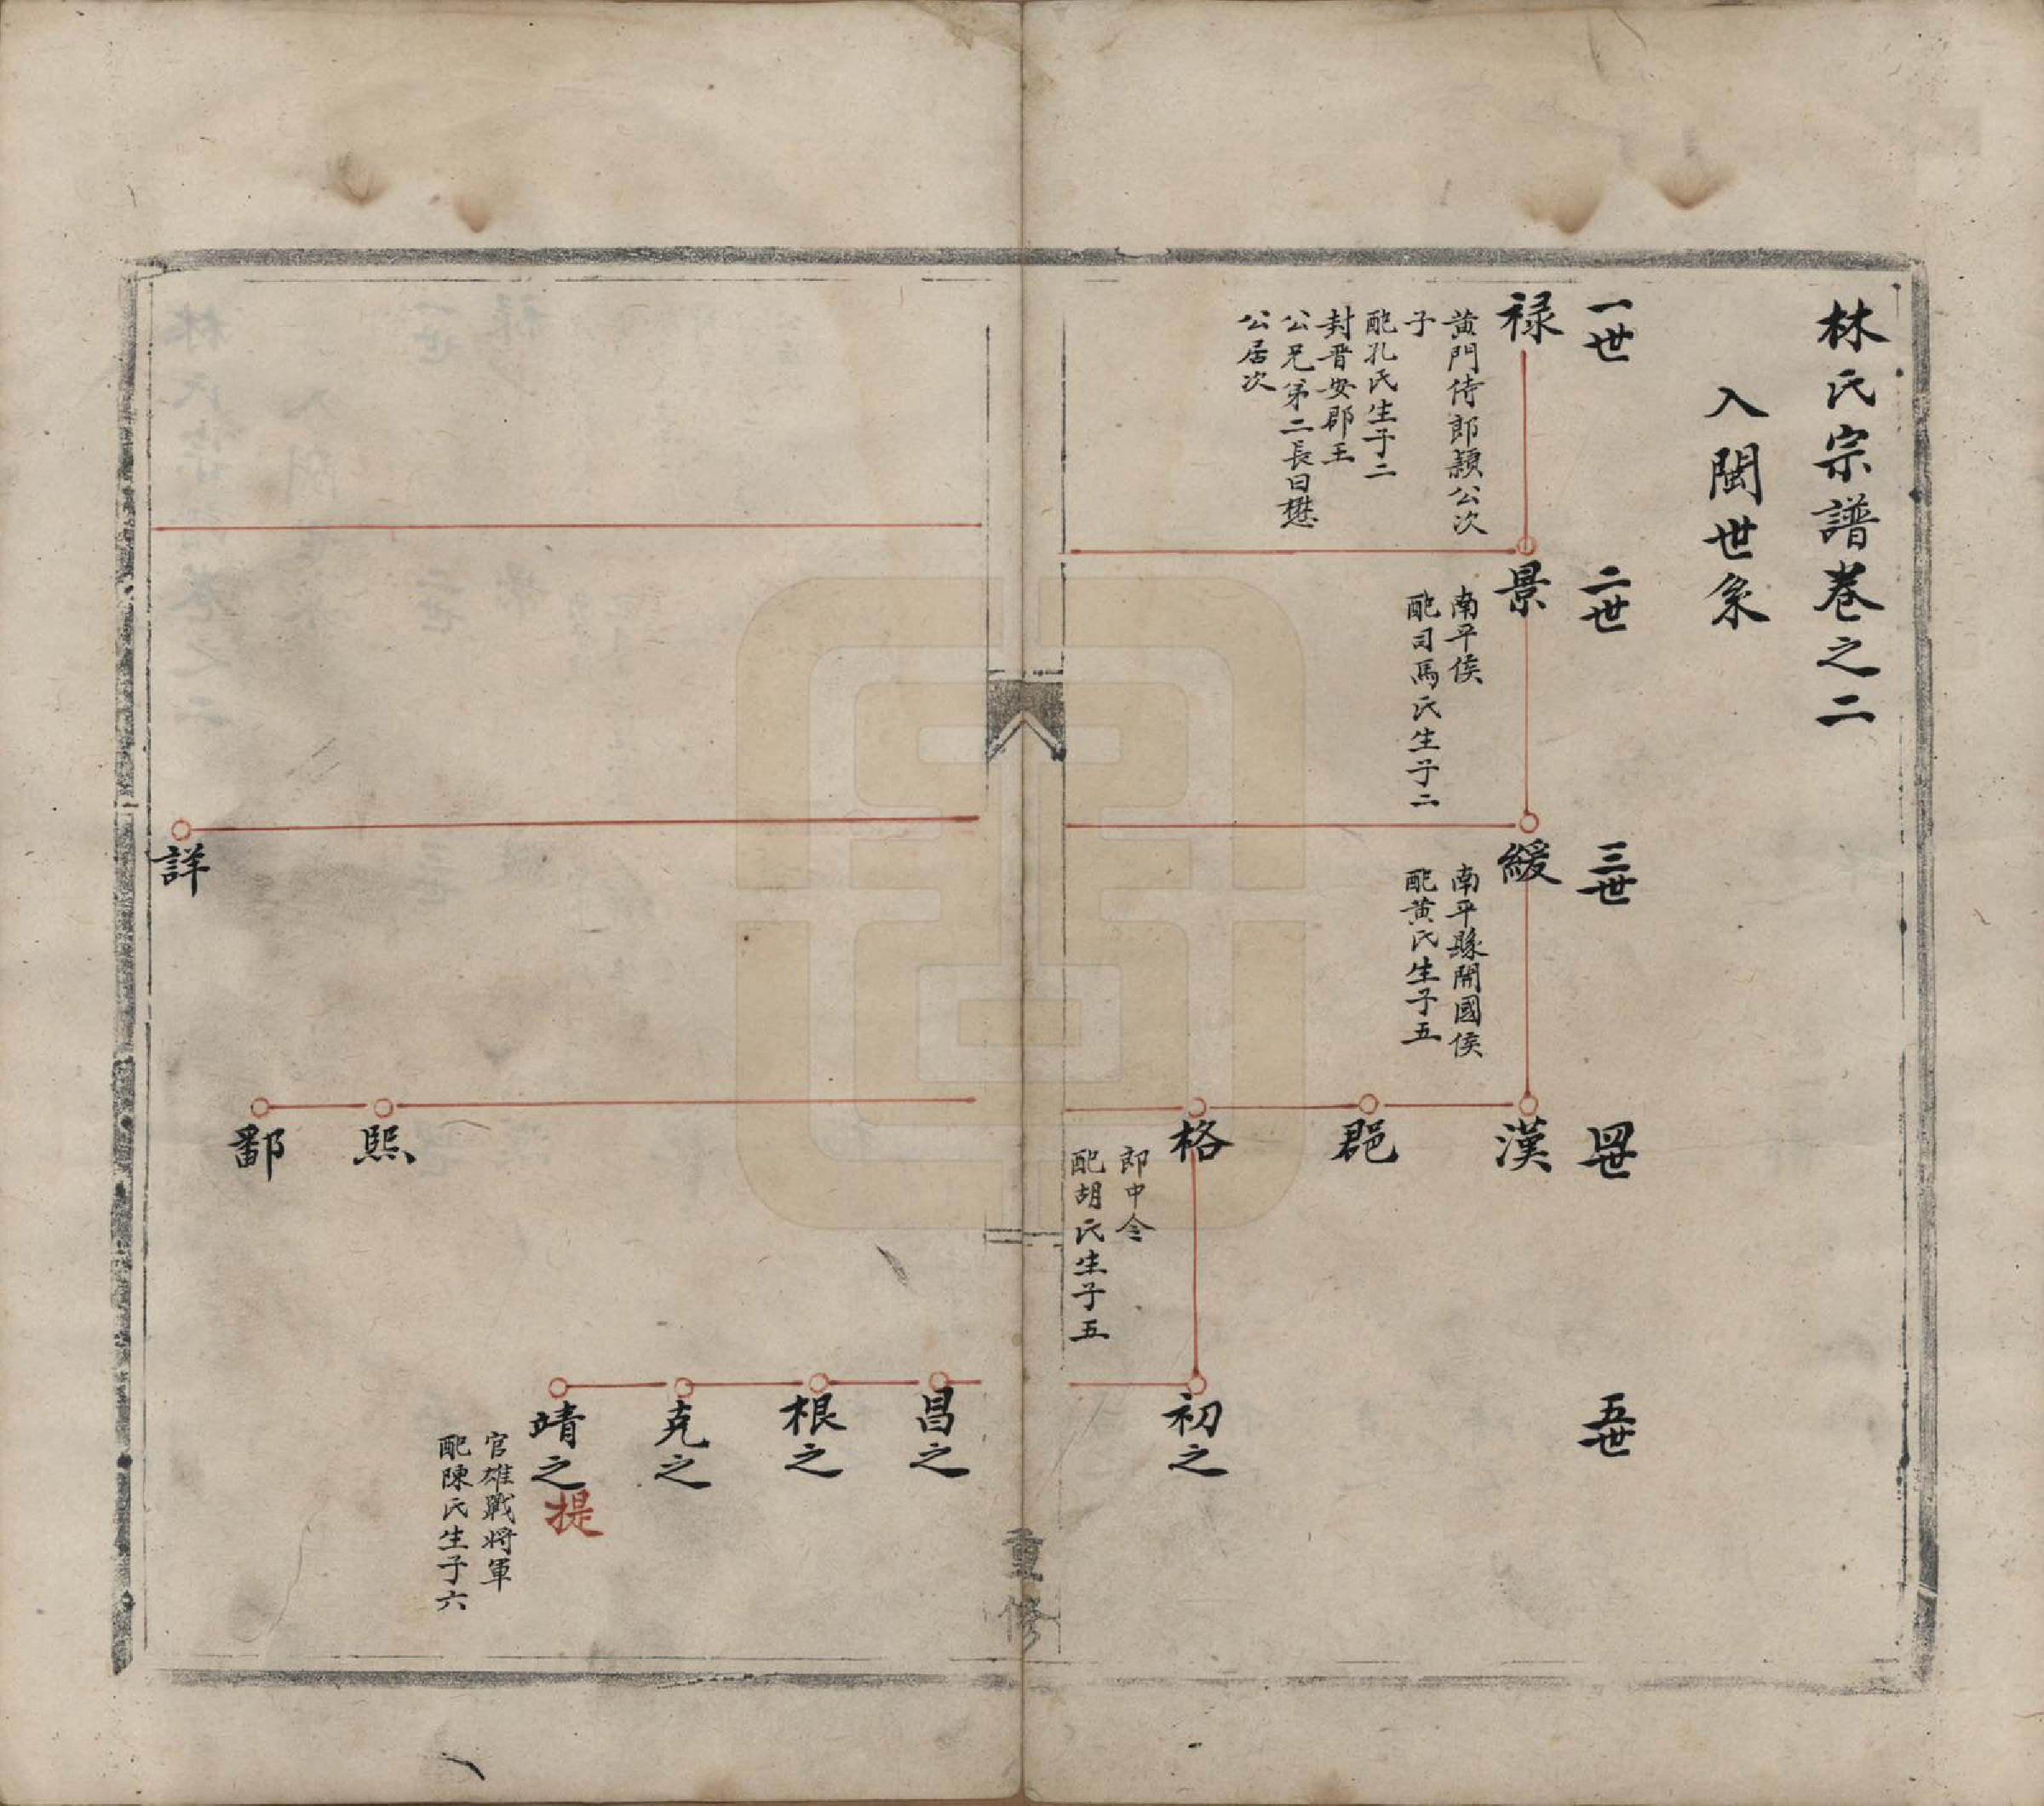 林氏宗譜卷之二
入閩世系
一世
二世
三世
四世
五世
禄
黃門侍郎穎公次
子
配孔氏生子二
封晋安郡王
公兄弟二長曰懋
公居次
景
南平侯
配司馬氏生子二
緩
南平縣開國侯
配黃氏生子五
漢
郒
格
郎中令
配胡氏生子五
初之
重修
昌之
根之
克之
靖之
提
官雄戰將軍
配陳氏生子六
熈
鄱
詳